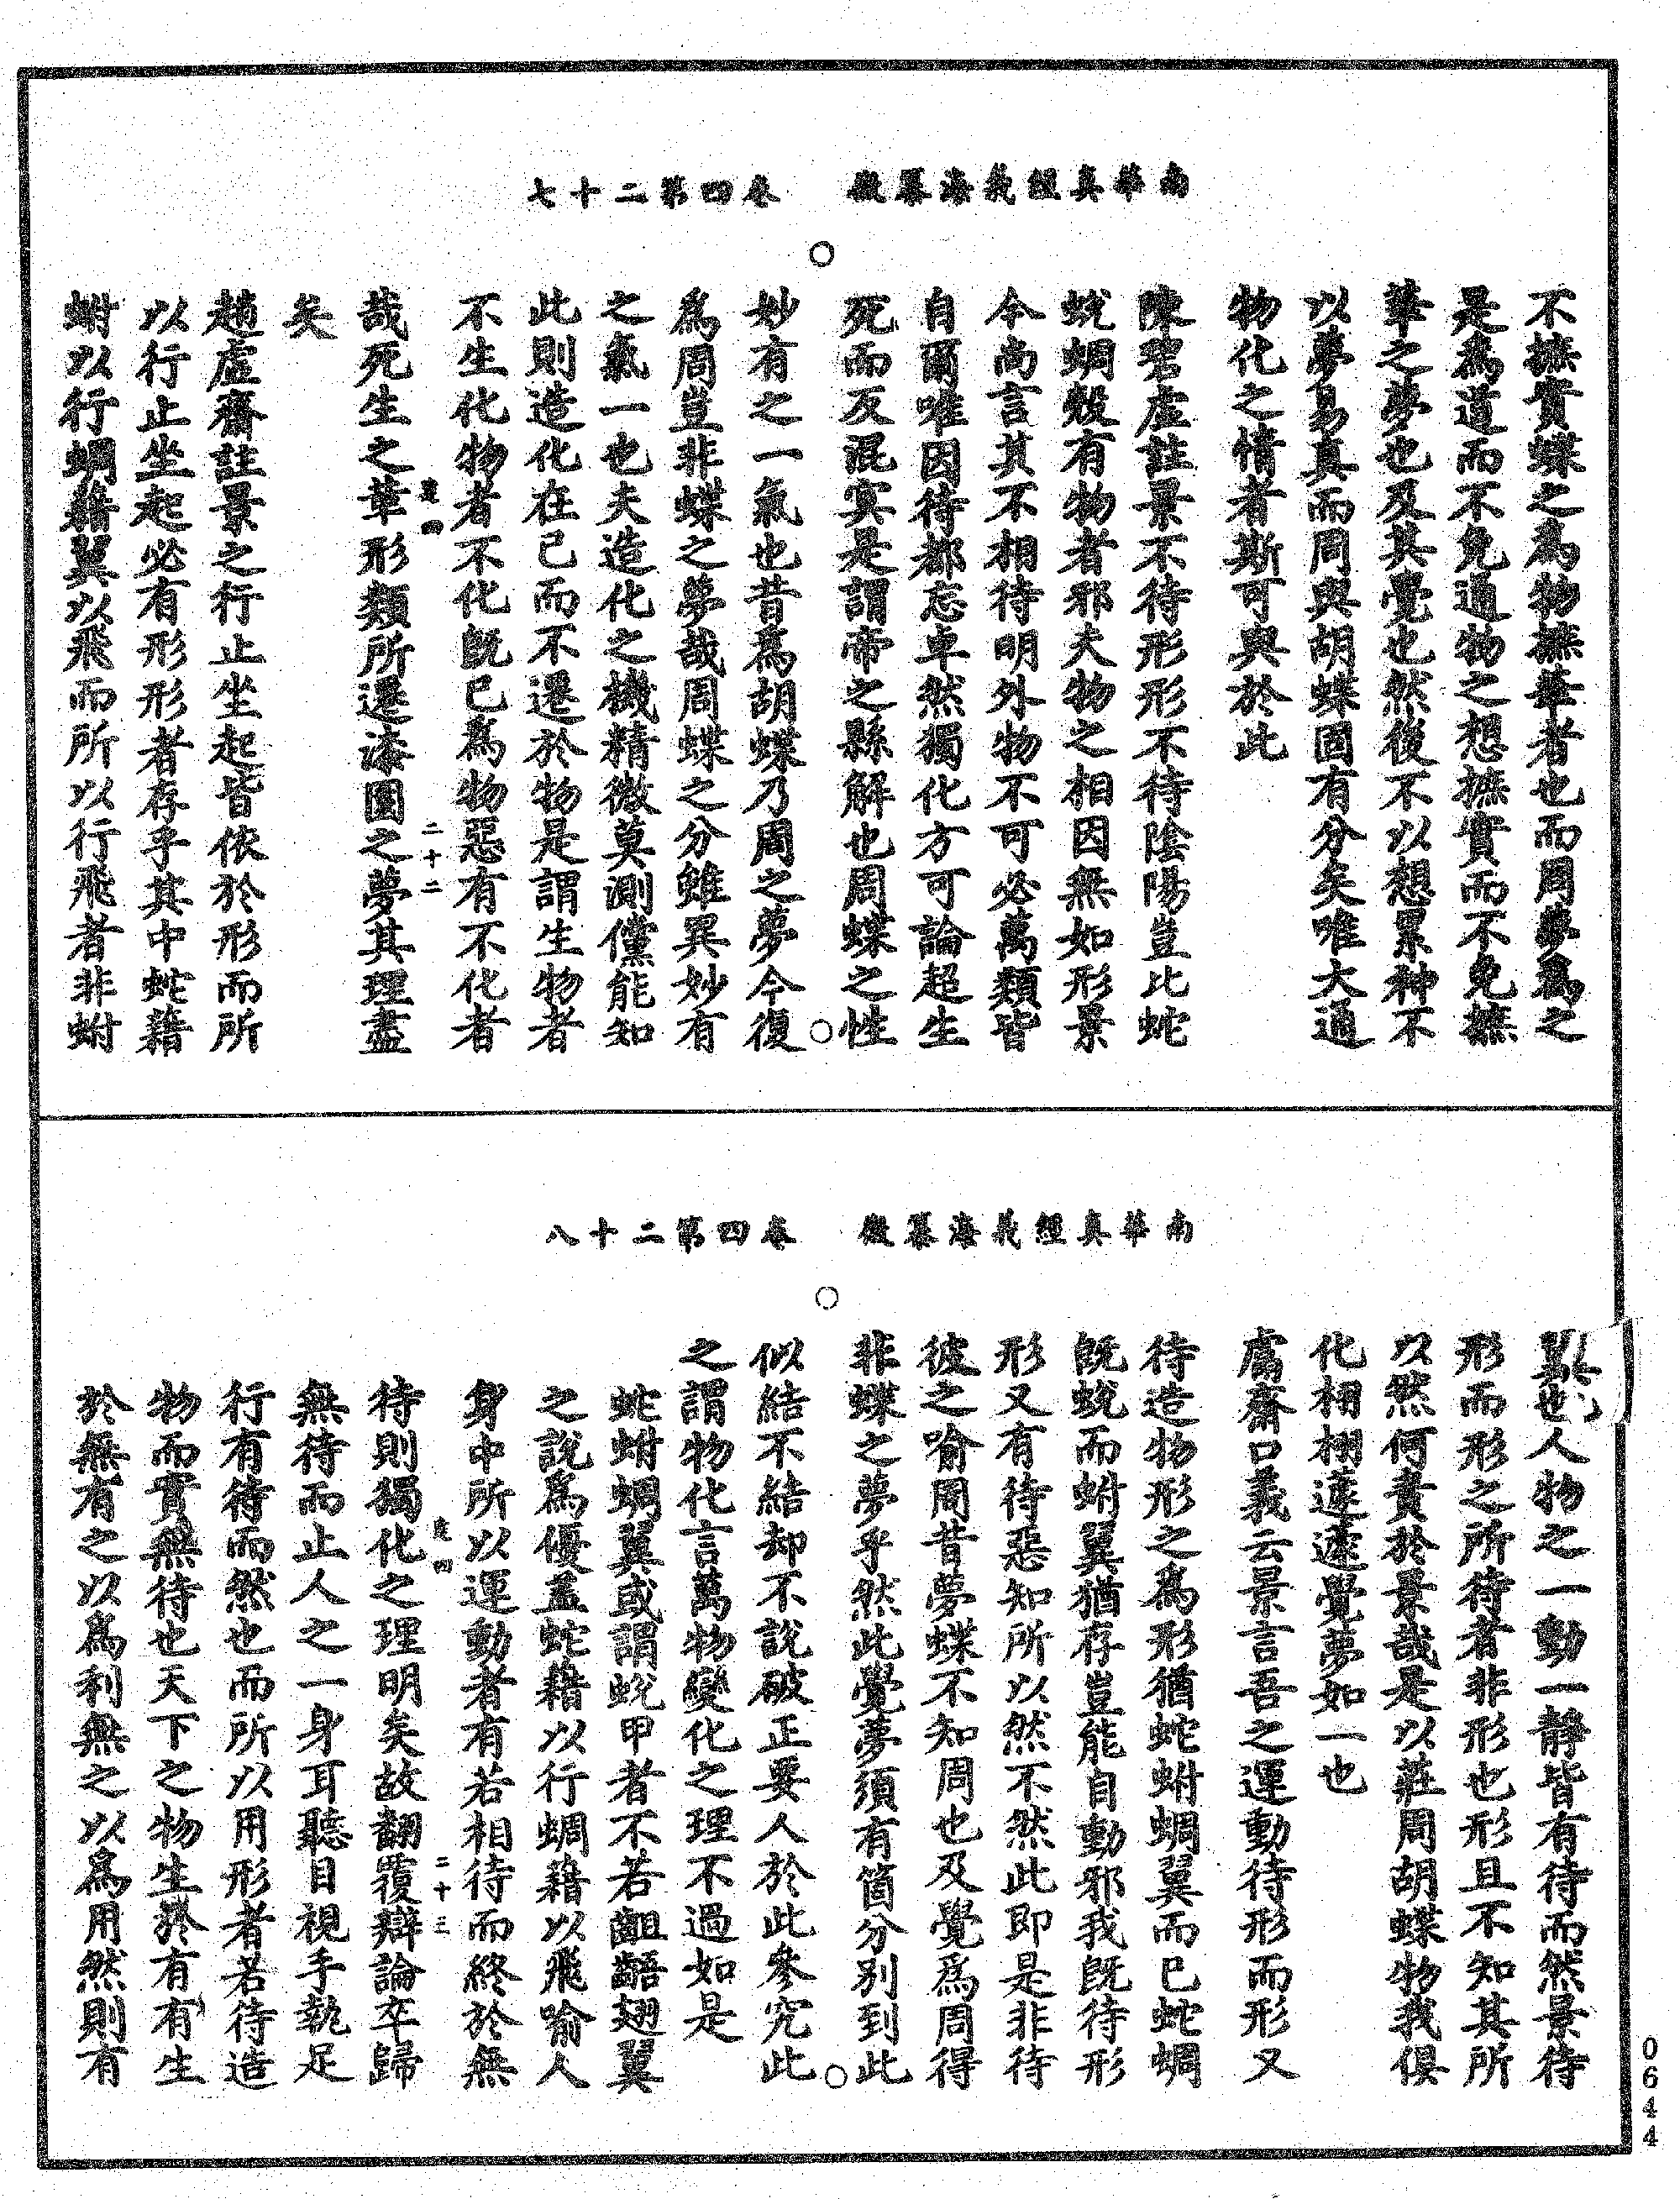 南華真經義海纂微　卷四第二十七
不摭實蝶之為物摭華者也而周夢為之
是為道而不免通物之想摭實而不免摭
華之夢也及其覺也然後不以想累神不
以夢易真而周與胡蝶固有分矣唯大通
物化之情者斯可與於此
陳碧虛註景不待形形不待陰陽豈比蛇
蛻蜩殼有物者邪夫物之相因無如形景
今尚言其不相待明外物不可必萬類皆
自爾唯因待都忘卓然獨化方可論超生
死而反混冥是謂帝之縣解也周蝶之性
妙有之一氣也昔為胡蝶乃周之夢今復
為周豈非蝶之夢哉周蝶之分雖異妙有
之氣一也夫造化之機精微莫測儻能知
此則造化在己而不遷於物是謂生物者
不生化物者不化既已為物惡有不化者
二十二
哉死生之革形類所遷漆園之夢其理盡
矣
趙虛齋註景之行止坐起皆依於形而所
以行止坐起必有形形者存乎其中蛇藉
蚹以行蜩藉翼以飛而所以行飛者非蚹
南華真經義海纂微　卷四第二十八
翼也人物之一動一靜皆有待而然景待
形而形之所待者非形也形且不知其所
以然何責於景哉是以莊周胡蝶物我俱
化栩栩蘧蘧覺夢如一也
鬳齋口義云景言吾之運動待形而形又
待造物形之為形猶蛇蚹蜩翼而已蛇蜩
既蛻而蚹翼猶存豈能自動邪我既待形
形又有待惡知所以然不然此即是非待
彼之喻周昔夢蝶不知周也及覺為周得
非蝶之夢乎然此覺夢須有箇分別到此
似結不結却不說破正要人於此參究此
之謂物化言萬物變化之理不過如是
蛇蚹蜩翼或謂蛻甲者不若齟齬翅翼
之說為優蓋蛇藉以行蜩藉以飛喻人
身中所以運動者有若相待而終於無
二十三
待則獨化之理明矣故翻覆辯論卒歸
無待而止人之一身耳聽目視手執足
行有待而然也而所以用形者若待造
物而實無待也天下之物生於有有生
於無有之以為利無之以為用然則有
0644